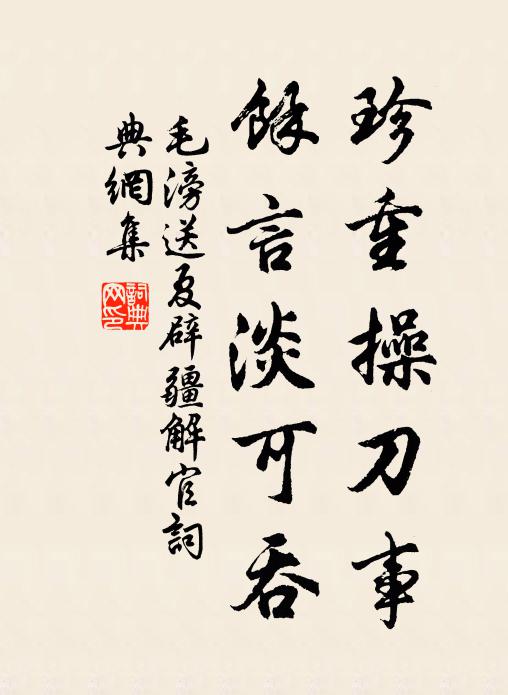 珍重操刀事
餘言淡可吞
毛滂送夏辟疆解官詞
典網集
詞典網印